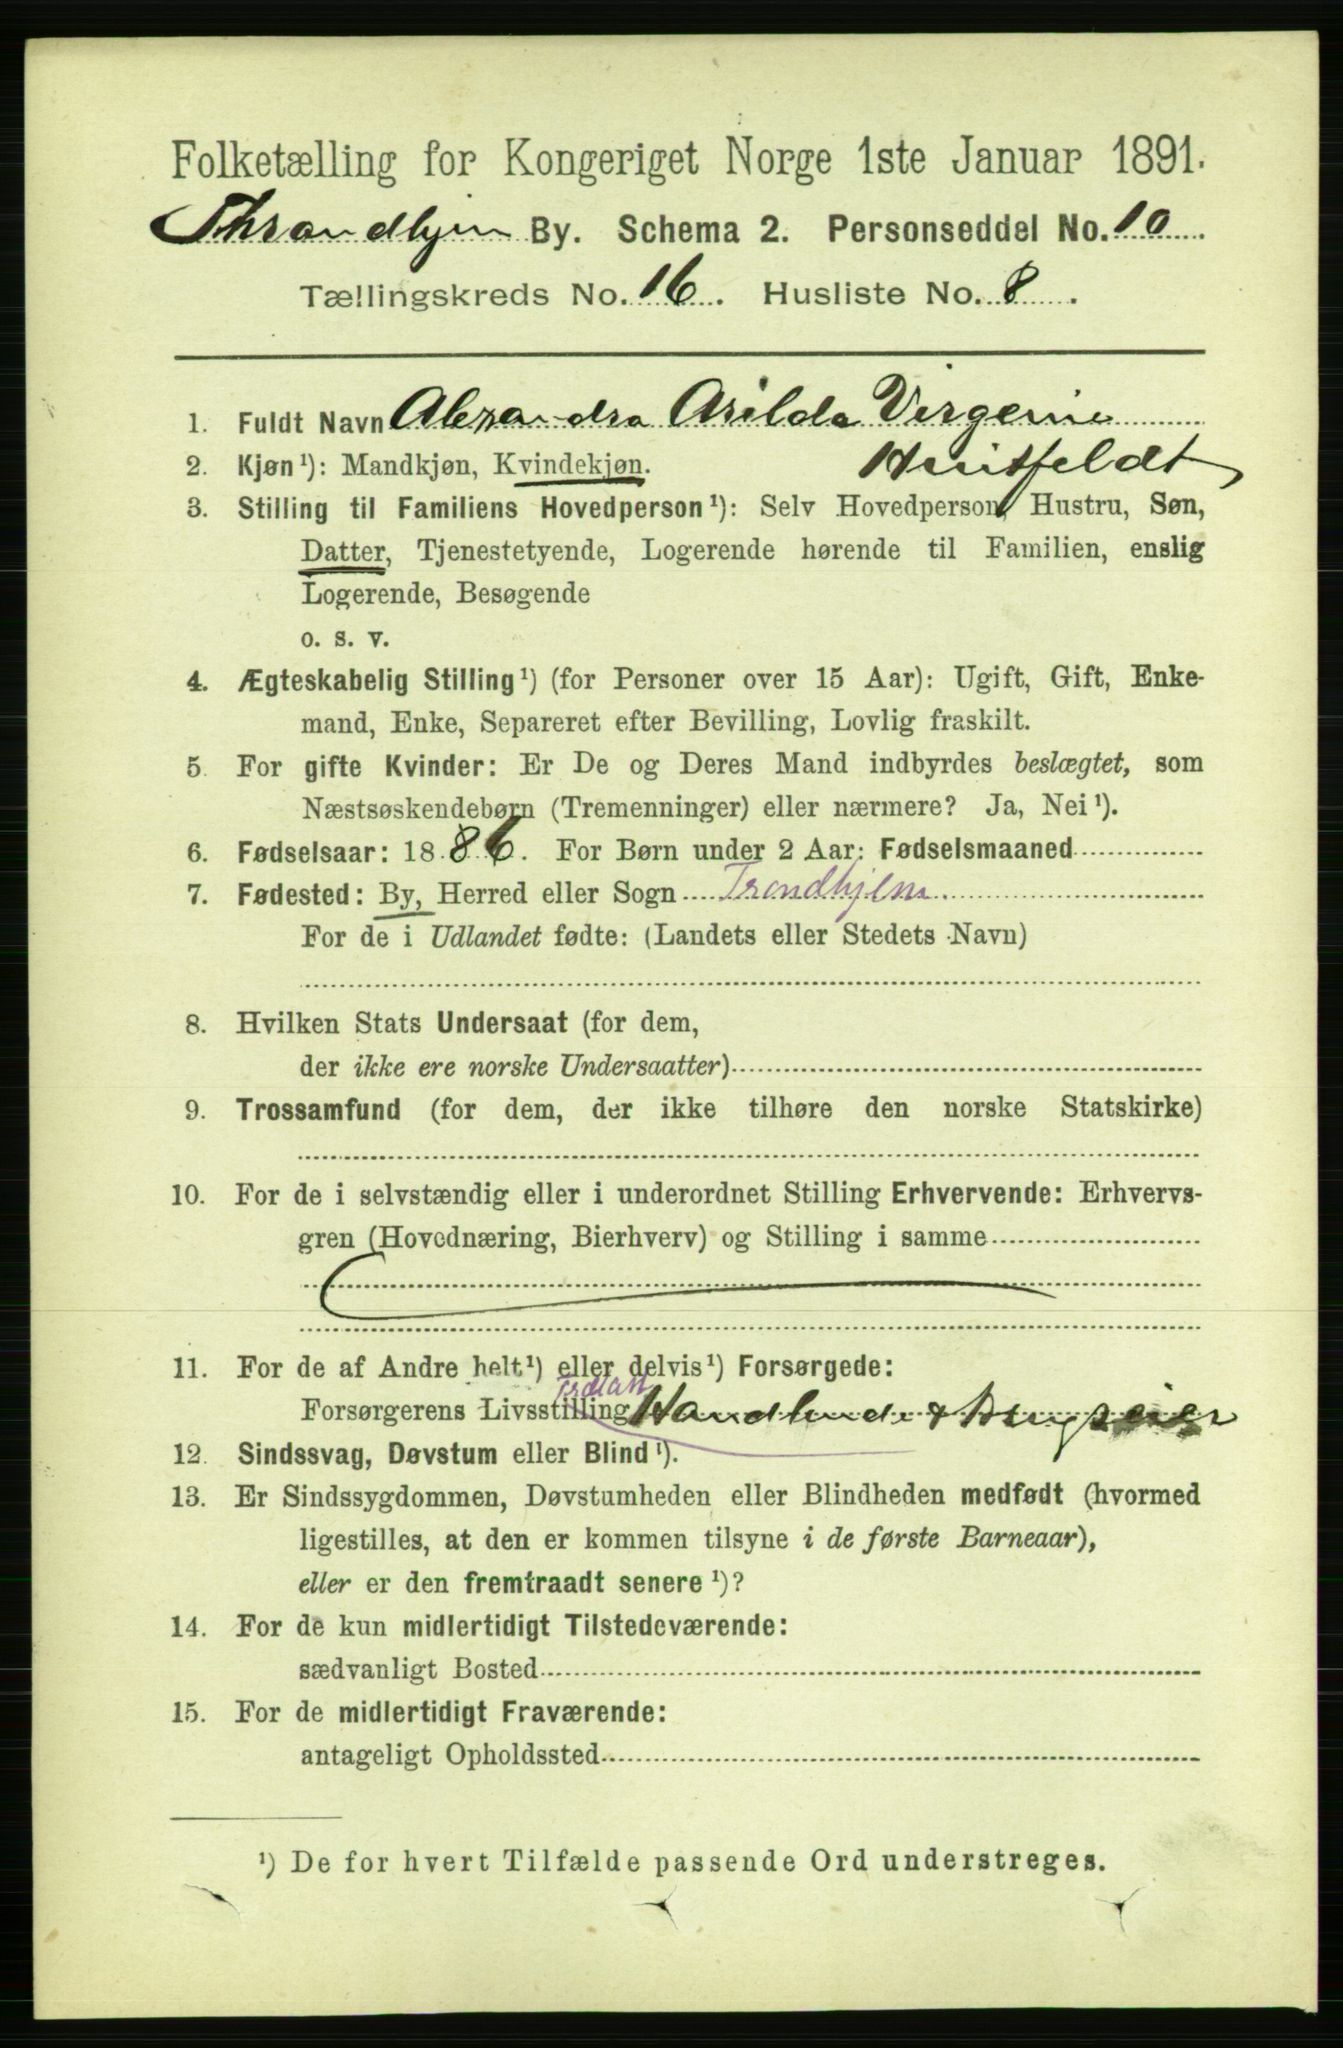 Folketælling for Kongeriget Norge 1ste Januar 1891.
Thrandhjem By. Schema 2. Personseddel No. 10
Tællingskreds No. 16. Husliste No. 8.
1. Fuldt Navn Alexandra Arilda Virgenie
Huitfeldt
2. Kjøn¹): Mandkjøn, Kvindekjøn.
3. Stilling til Familiens Hovedperson¹): Selv Hovedperson, Hustru, Søn,
Datter, Tjenestetyende, Logerende hørende til Familien, enslig
Logerende, Besøgende
o. s. v.
4. Ægteskabelig Stilling¹) (for Personer over 15 Aar): Ugift, Gift, Enke-
mand, Enke, Separeret efter Bevilling, Lovlig fraskilt.
5. For gifte Kvinder: Er De og Deres Mand indbyrdes beslægtet, som
Næstsøskendebørn (Tremenninger) eller nærmere? Ja, Nei¹).
6. Fødselsaar: 1886. For Børn under 2 Aar: Fødselsmaaned
7. Fødested: By, Herred eller Sogn Trondhjem
For de i Udlandet fødte: (Landets eller Stedets Navn)
8. Hvilken Stats Undersaat (for dem,
der ikke ere norske Undersaatter)
9. Trossamfund (for dem, der ikke tilhøre den norske Statskirke)
10. For de i selvstændig eller i underordnet Stilling Erhvervende: Erhvervs-
gren (Hovednæring, Bierhverv) og Stilling i samme
11. For de af Andre helt¹) eller delvis¹) Forsørgede:
Trælast
Forsørgerens Livsstilling Handlende &
12. Sindssvag, Døvstum eller Blind¹).
13. Er Sindssygdommen, Døvstumheden eller Blindheden medfødt (hvormed
ligestilles, at den er kommen tilsyne i de første Barneaar),
eller er den fremtraadt senere¹)?
14. For de kun midlertidigt Tilstedeværende:
sædvanligt Bosted
15. For de midlertidigt Fraværende:
antageligt Opholdssted
¹) De for hvert Tilfælde passende Ord understreges.